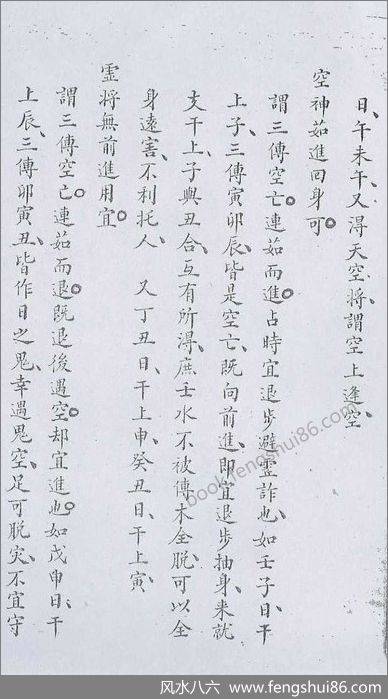 日、午未午、又淂天空將、謂空上逢空、
空神茹進回身可。
謂三傳空亡。連茹而進。占時宜退步避虛詐也、如壬子日、干
上子、三傳寅卯辰、皆是空亡、既向前進、即宜退步抽身、来就
支干上子與丑合、互有所淂、庶壬水不被傳木全脱、可以全
身遠害、不利托人、 又丁丑日、干上申、癸丑日、干上寅、
虛將無前進用宜。
謂三傳空亡。連茹而退。既退後遇空。却宜進也。如戊申日、干
上辰、三傳卯寅丑、皆作日之鬼、幸遇鬼空、足可脱灾、不宜守
book.fengshui86.com
风水八六 www.fengshui86.com